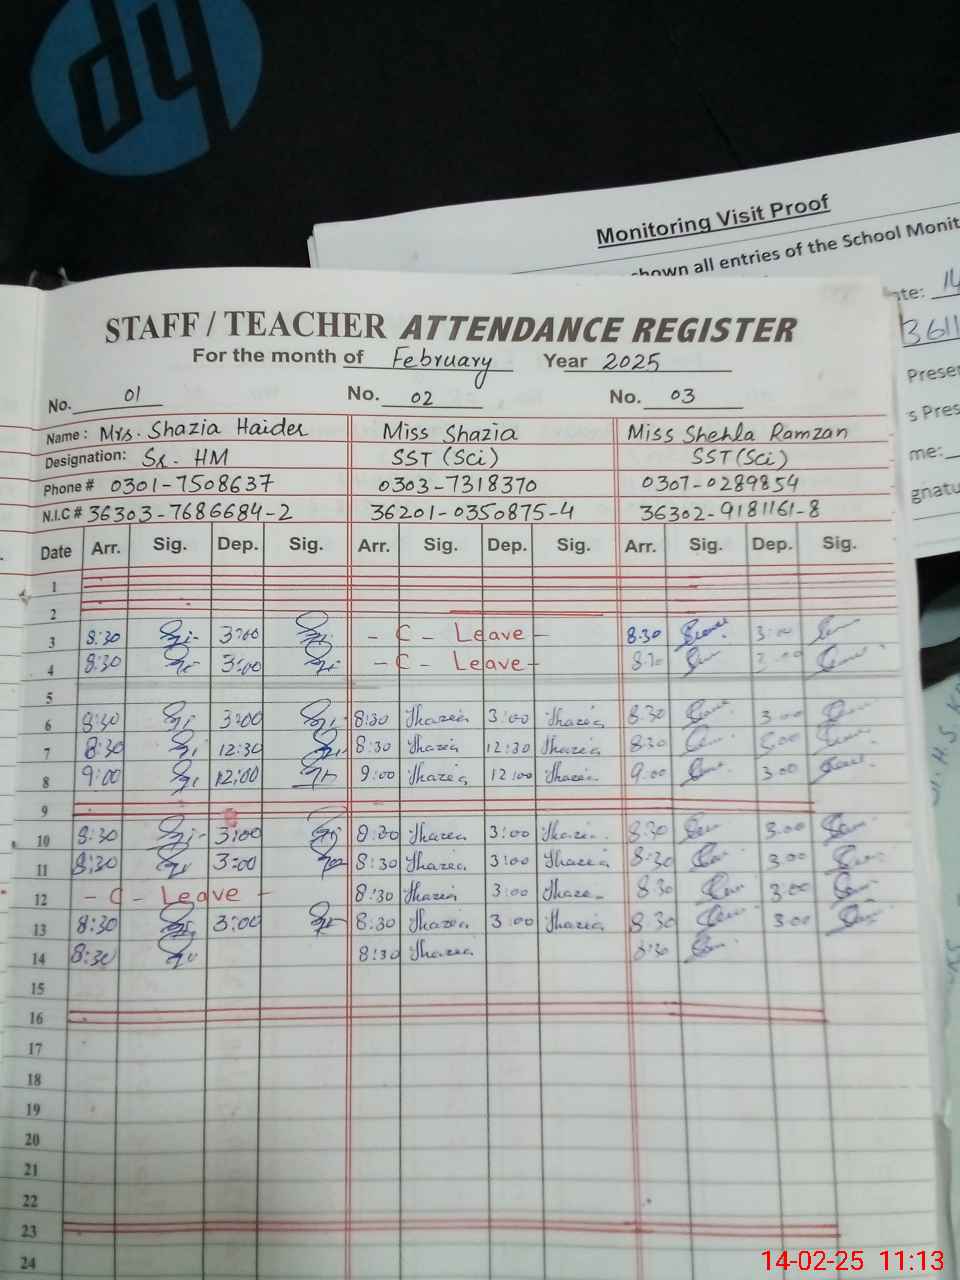 hp
Monitoring Visit Proof
shown all entries of the School Monit
ate: 14
3611
Presen
s Pres
me:
gnatu
STAFF / TEACHER ATTENDANCE REGISTER
For the month of February Year 2025
No. 01 No. 02 No. 03
Name: Mrs. Shazia Haider Miss Shazia Miss Shehla Ramzan
Designation: Sr. HM SST (Sci) SST (Sci)
Phone # 0301-7508637 0303-7318370 0307-0289854
N.I.C # 36303-7686684-2 36201-0350875-4 36302-9181161-8
Date Arr. Sig. Dep. Sig. Arr. Sig. Dep. Sig. Arr. Sig. Dep. Sig.
1
2
3 8:30 3:00 - C - Leave - 8:30 3:00
4 8:30 3:00 - C - Leave - 8:30 3:00
5
6 8:30 3:00 8:30 Shazia 3:00 Shazia 8:30 3:00
7 8:30 12:30 8:30 Shazia 12:30 Shazia 8:30
8 9:00 12:00 9:00 Shazia 12:00 Shazia 9:00 3:00
9
10 8:30 3:00 8:30 Shazia 3:00 Shazia 8:30 3:00
11 8:30 3:00 8:30 Shazia 3:00 Shazia 8:30 3:00
12 - C - Leave - 8:30 Shazia 3:00 Shazia 8:30 3:00
13 8:30 3:00 8:30 Shazia 3:00 Shazia 8:30 3:00
14 8:30 8:30 Shazia 8:30
15
16
17
18
19
20
21
22
23
24
14-02-25 11:13